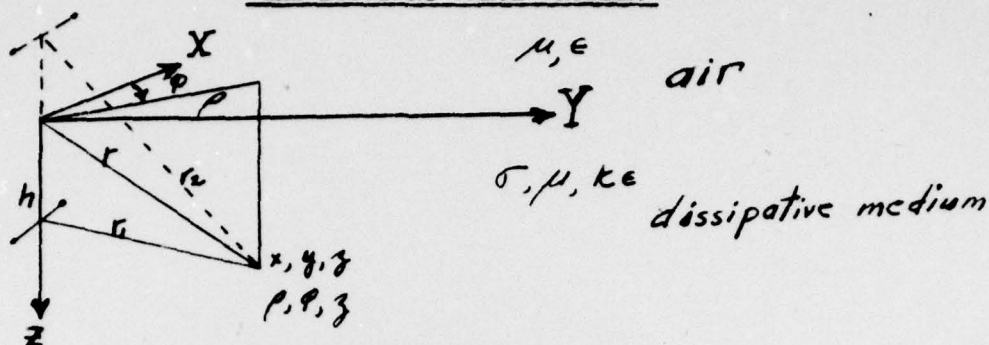 X
μ, ϵ
air
φ
ρ
Y
r
r₂
σ, μ, kϵ
dissipative medium
h
r₁
x, y, z
ρ, φ, z
Z